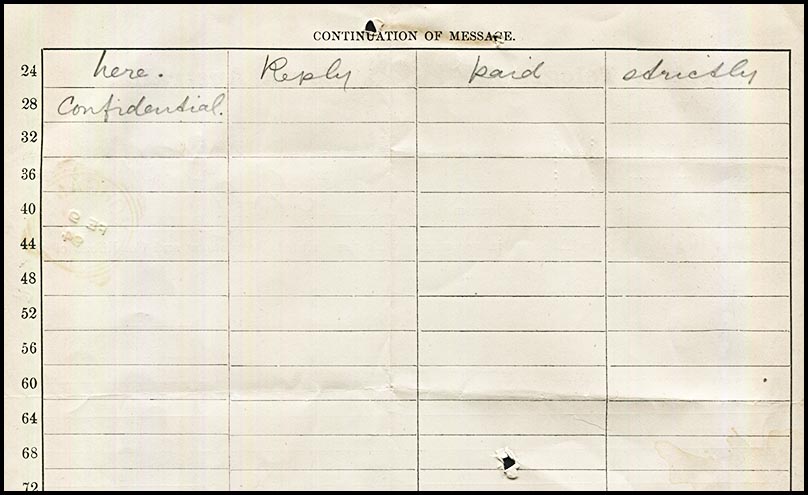 CONTINUATION OF MESSAGE.
24 here. Reply paid strictly
28 Confidential.
32
36
40
44
48
52
56
60
64
68
72
FE 9
94